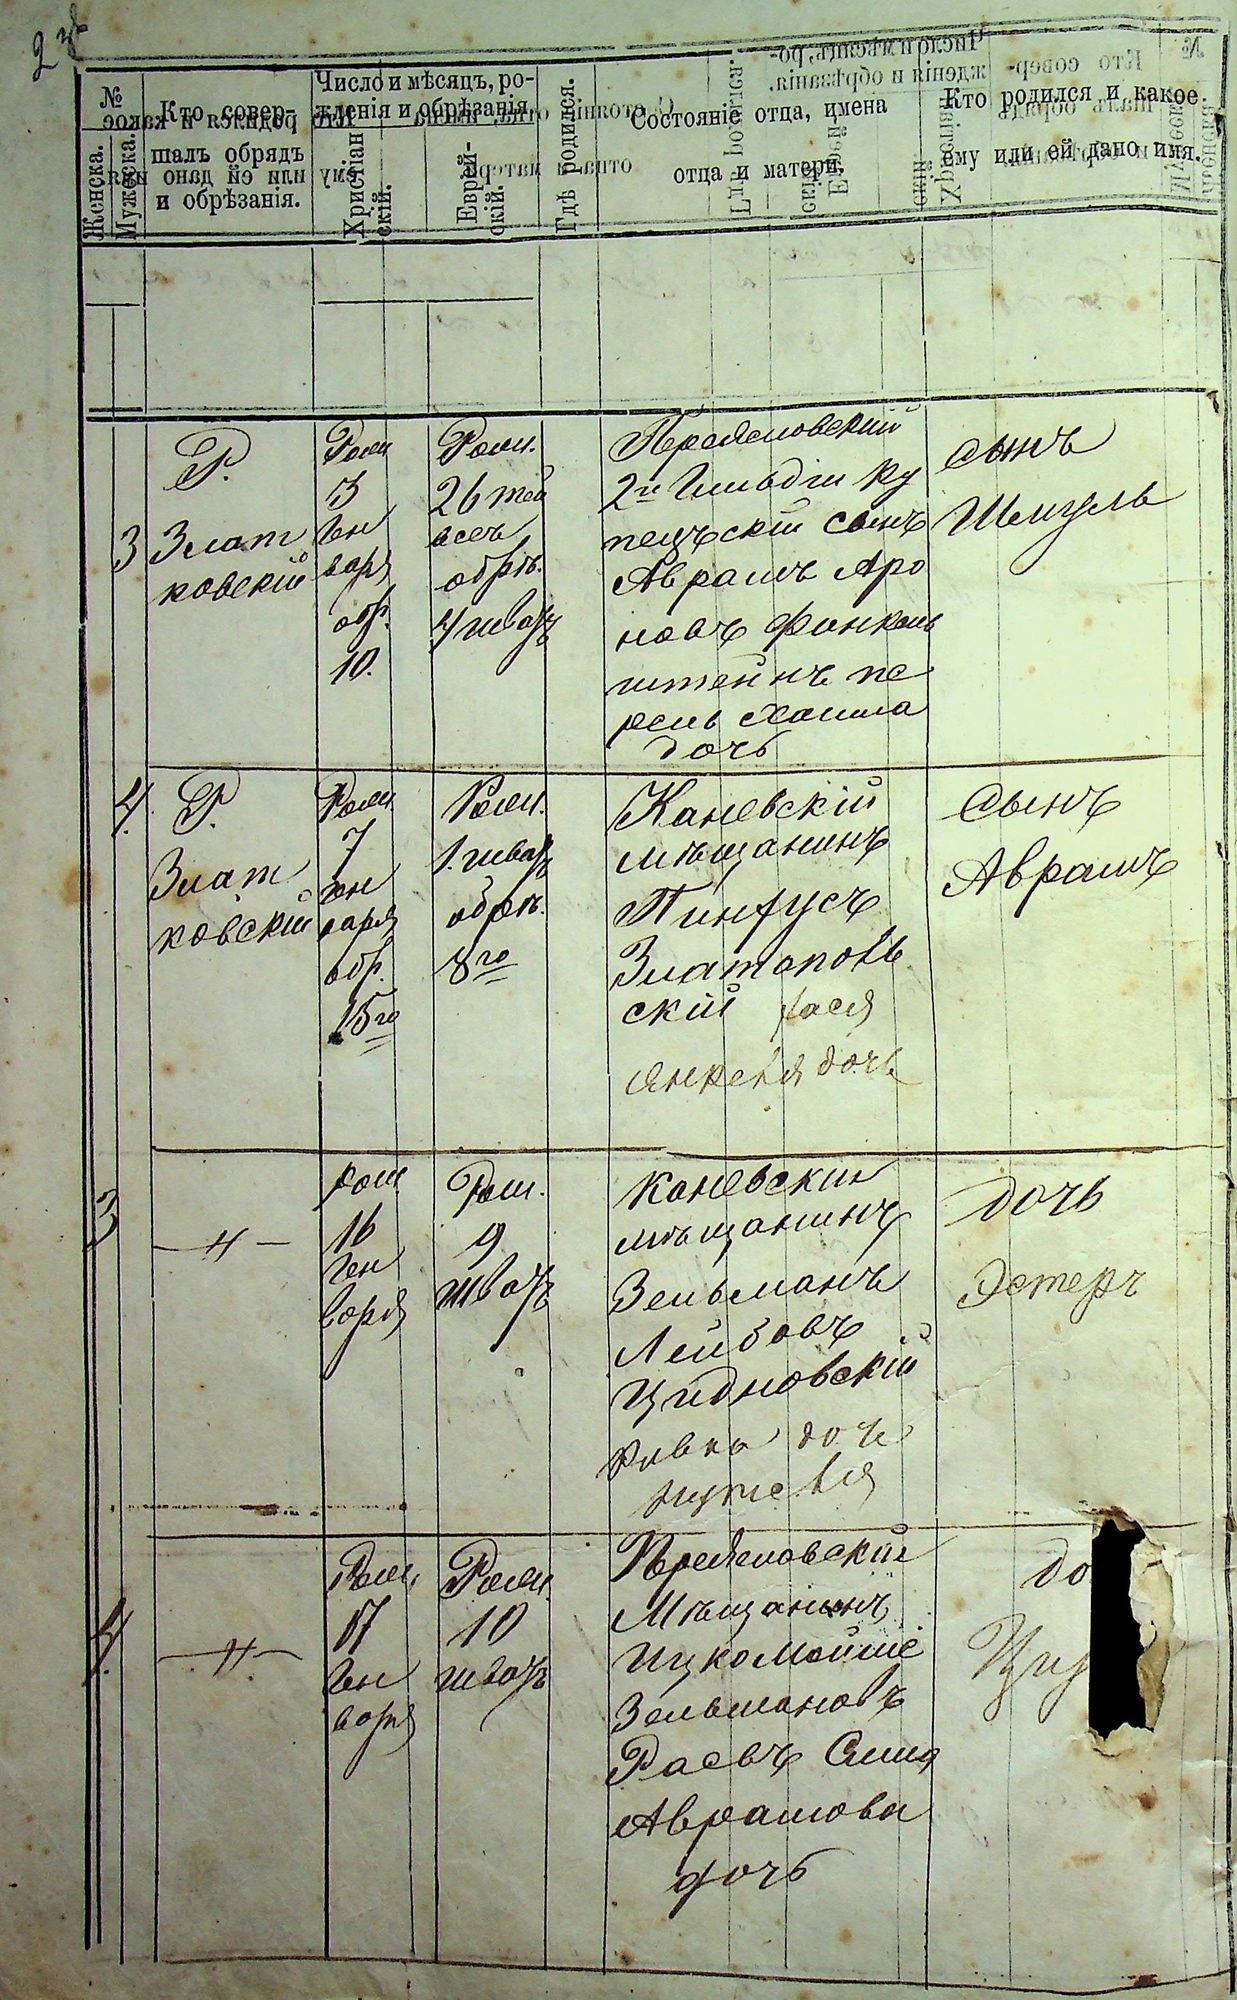 2
№
Женска.
Мужеска.
Кто совер-
шалъ обрядъ
и обрѣзанія.
Число и мѣсяцъ, ро-
жденія и обрѣзанія
Христіан
скій.
Еврей-
скій.
Гдѣ родился.
Состояніе отца, имена
отца и матери.
Кто родился и какое
ему или ей дано имя.
3
Р.
Злат
ковскій
Роди
3
Ген
варя
обр.
10.
Роди.
26 тей
обрѣ.
4 шватъ
2й Гильдіи ку
печъскій сынъ
Аврамъ Аро
новъ Финкель
штейнъ
дочь
сынъ
Шмуль
4.
Р.
Злат
ковскій
Роди
7
ген
варя
обр.
15го
Роди.
1. шватъ
обрѣ.
8го
Каневскій
мѣщанинъ
Пинхусъ
Златополь
скій Хася
Янкелья дочь
Сынъ
Аврамъ
3
— 〃 —
роди
16
Ген
варя
Роди.
9
Шватъ
Каневскій
мѣщанинъ
Зельманъ
Лейбовъ
Ривка дочь
дочь
Эстеръ
4.
— 〃 —
Роди.
17
Ген
варя
Роди.
10
шватъ
Переясловскій
Мѣщанинъ
Ицко Мойше
Зельмановъ
Расвъ Сима
Аврамова
дочь
до